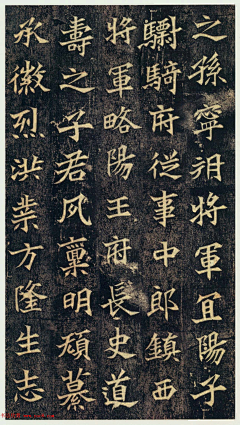 之孫寧朔將軍宜陽子
驃騎府從事中郎鎮西
將軍略陽王府長史道
壽之子君夙稟明碩纂
承徽烈洪業方隆生志